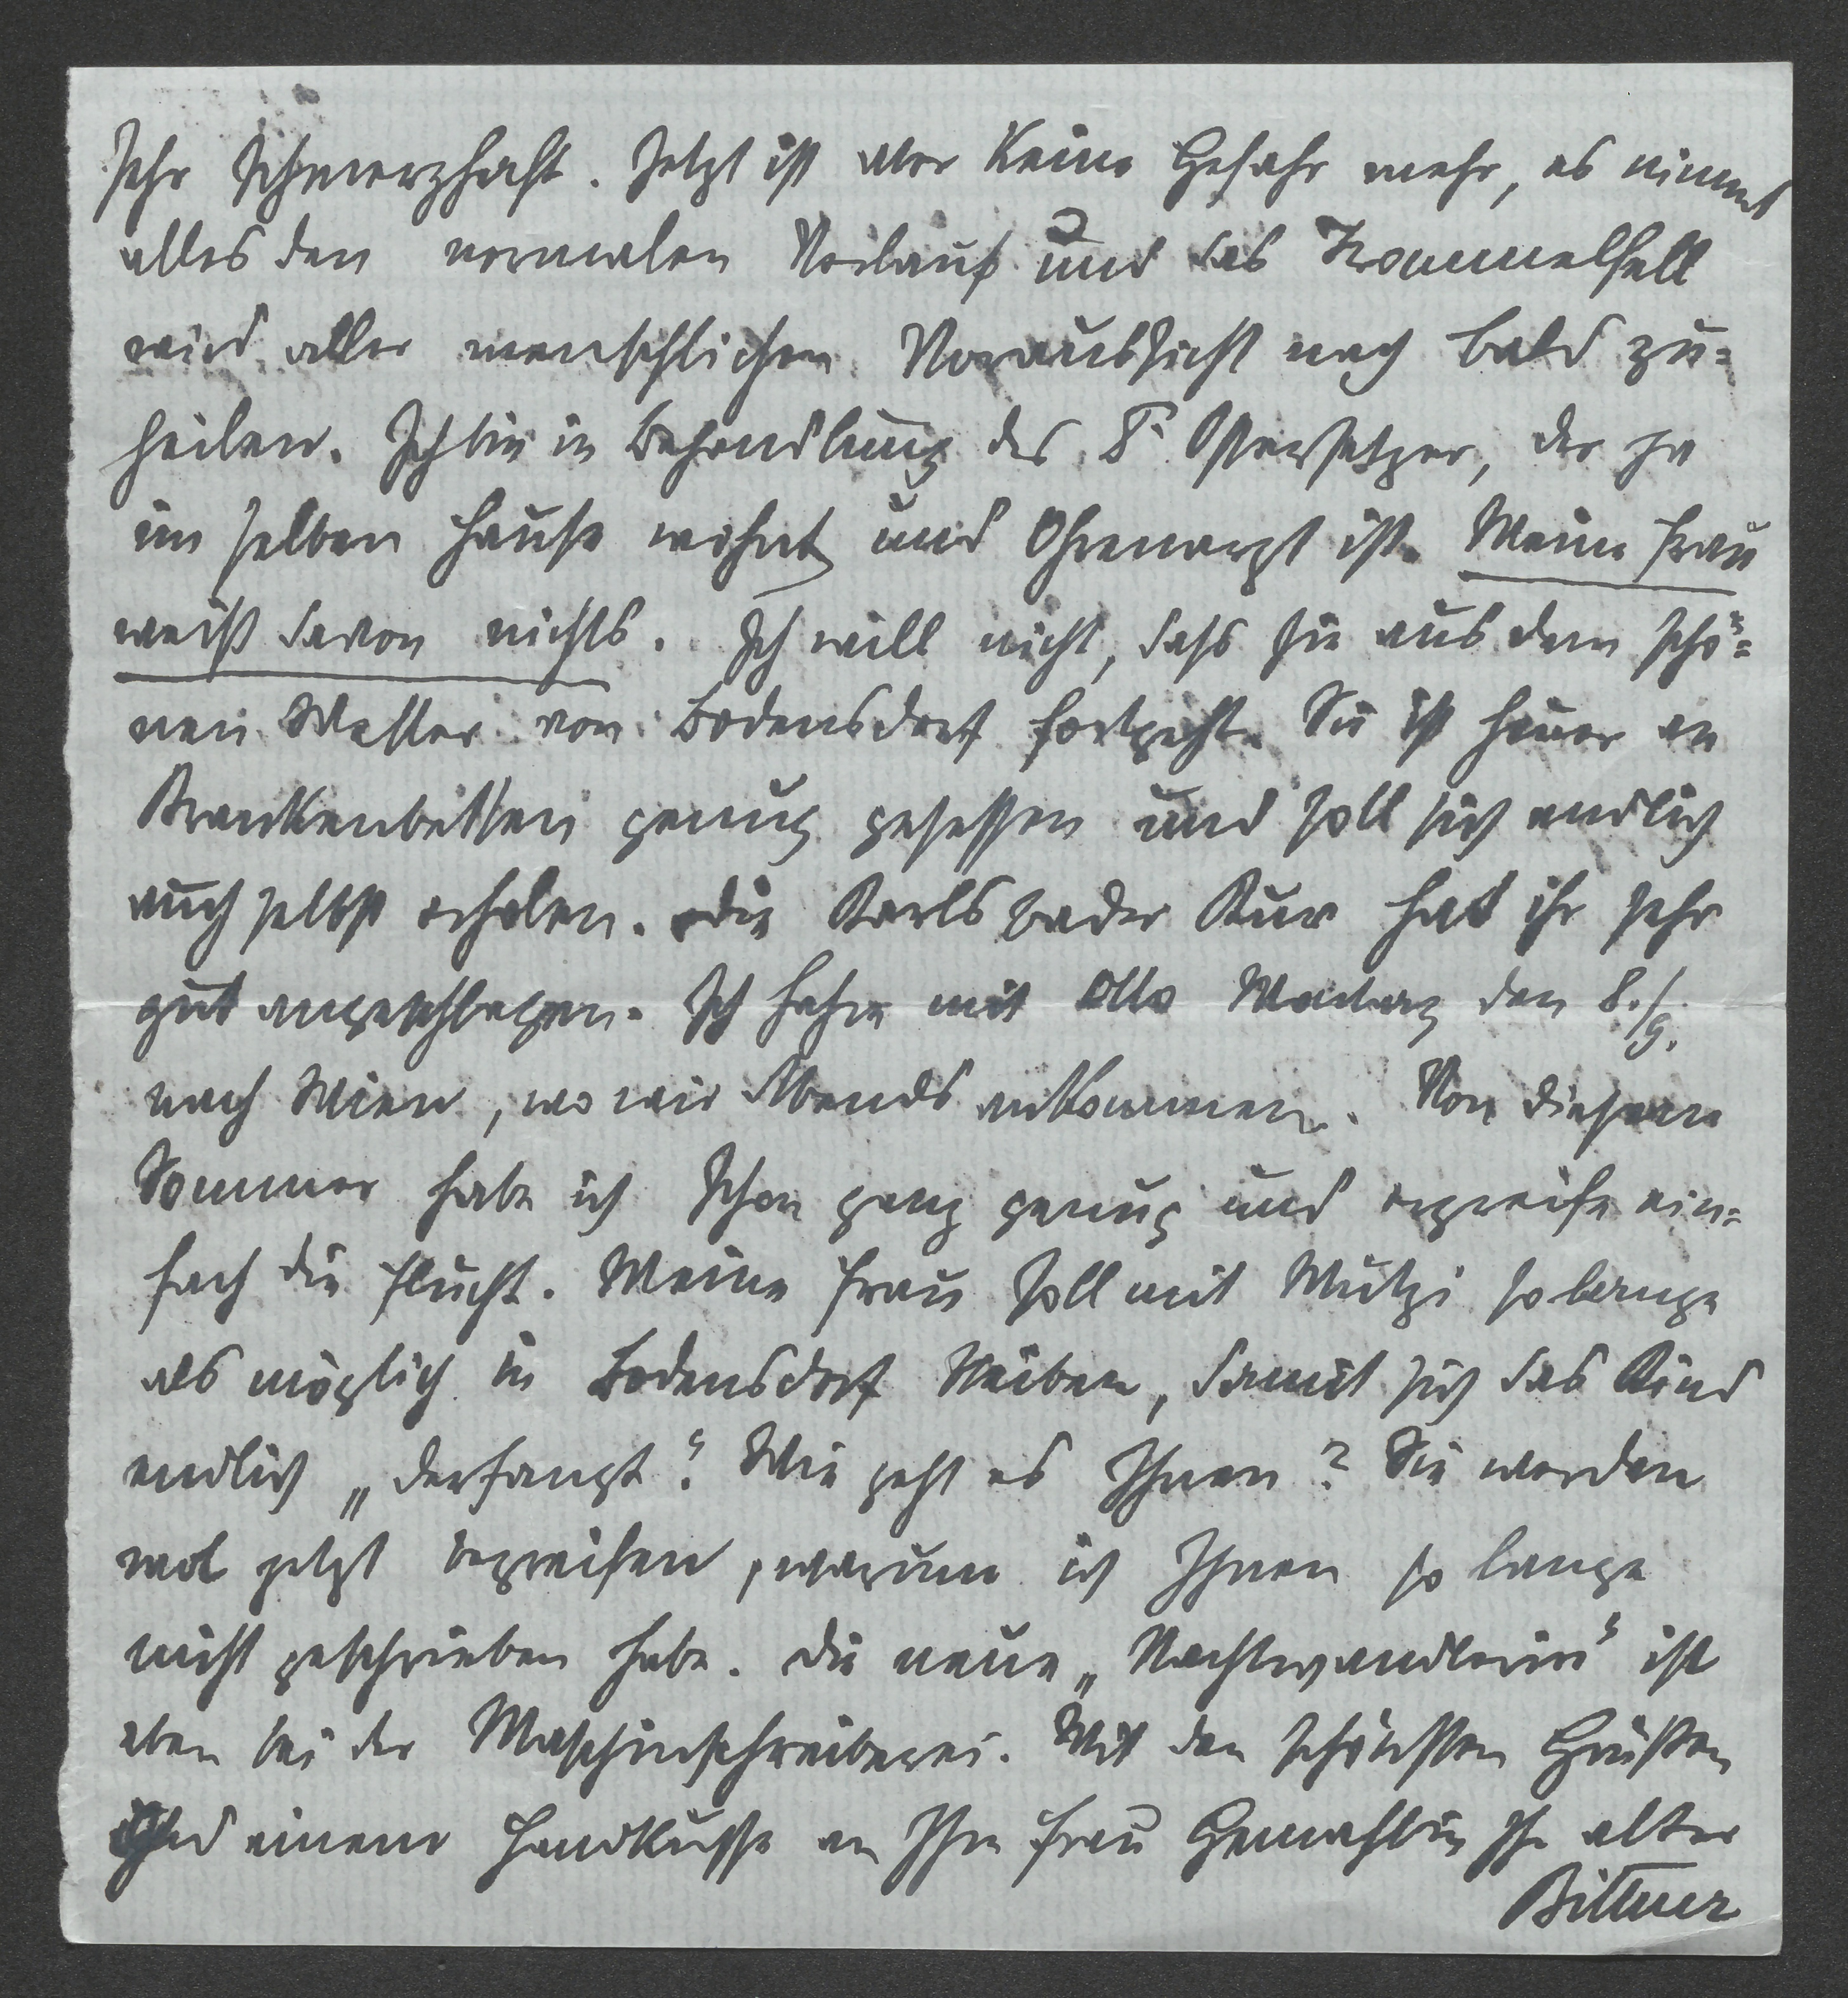 sehr schmerzhaft. Jetzt ist aber keine Gefahr mehr, es nimmt
alles den normalen Verlauf und das Trommelfell
wird aller menschlichen Voraussicht nach bald zu=
heilen. Ich bin in Behandlung des Dr. Ostersetzer, der ja
im selben Hause wohnt und Ohrenarzt ist. Meine Frau
weiß davon nichts. Ich will nicht, dass sie aus dem schö=
nen Wetter von Bodensdorf fortgeht. Sie ist heuer an
Krankenbetten genug gesessen und soll sich endlich
auch selbst erholen. Die Karlsbader Kur hat ihr sehr
gut angeschlagen. Ich fahre mit Otto Montag den 8./9.
nach Wien, wo wir Abends ankommen. Von diesem
Sommer habe ich schon ganz genug und ergreife ein=
fach die Flucht. Meine Frau soll mit Mutzi so lange
als möglich in Bodensdorf bleiben, damit sich das Kind
endlich „derfangt“. Wie geht es Ihnen? Sie werden
wol jetzt begreifen, warum ich Ihnen so lange
nicht geschrieben habe. Die neue „Nachtwandlerin“ ist
eben bei der Maschinschreiberei. Mit den schönsten Grüßen
und einem Handkusse an Ihre Frau Gemahlin Ihr alter
Bittner